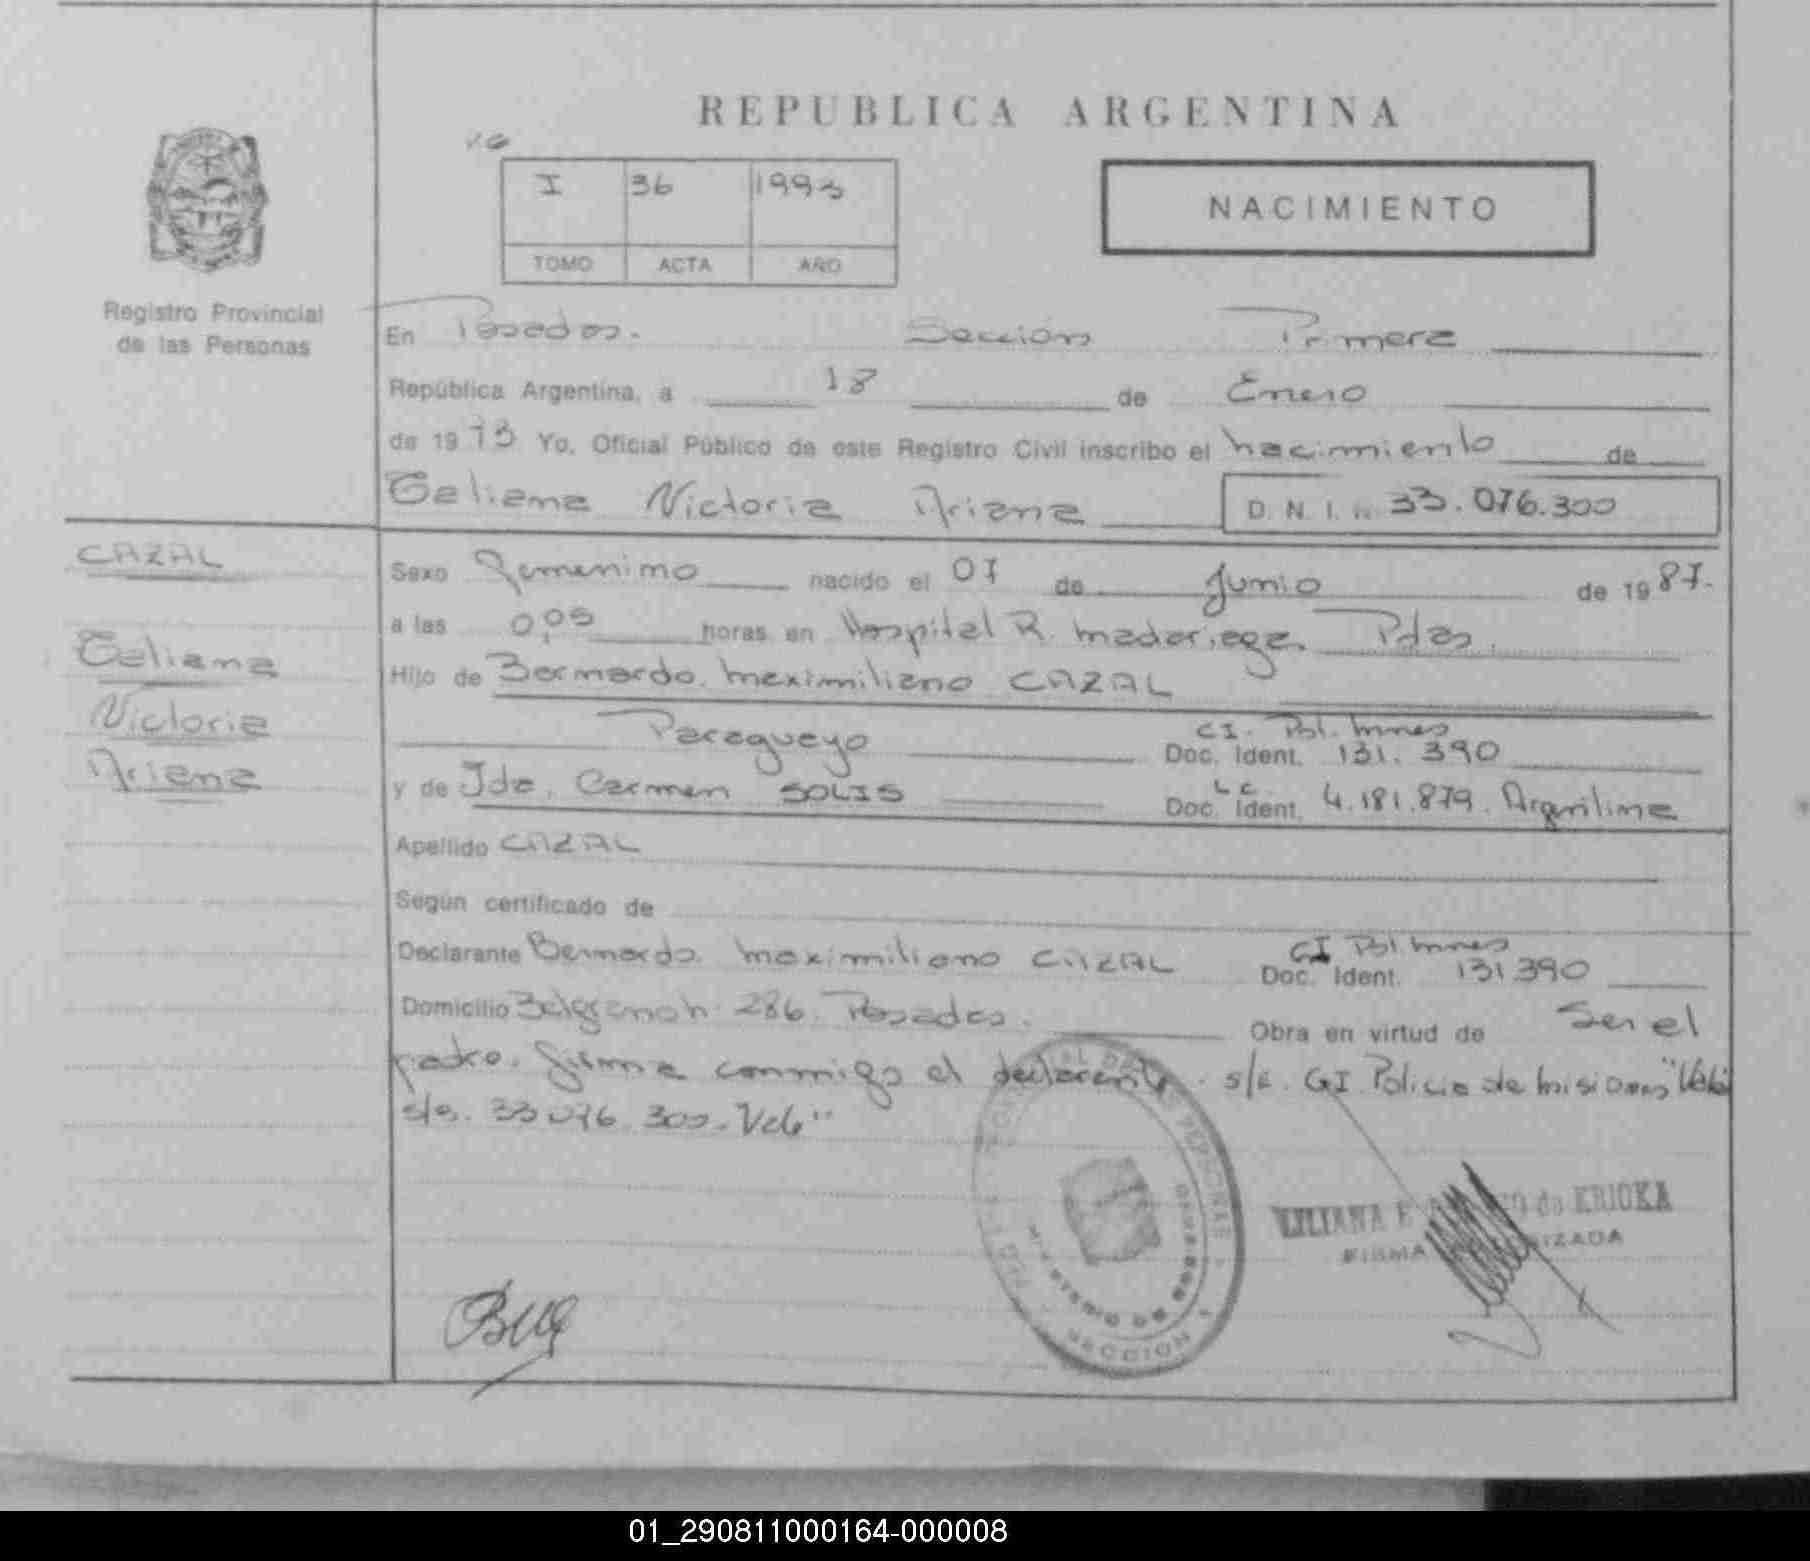 REPUBLICA ARGENTINA
I 36 1993
TOMO ACTA AÑO
NACIMIENTO
Registro Provincial
de las Personas
En Posadas. Sección Primera
República Argentina, a 18 de Enero
de 19 93 Yo, Oficial Público de este Registro Civil inscribo el nacimiento de
Victoria Ariana D. N. I. n. 33.076.300
CAZAL
Victoria
Ariana
Sexo Femenino nacido el 07 de Junio de 19 87.
a las 0,05 horas en Hospital R. Madariaga. Pdas.
Hijo de Bernardo Maximiliano CAZAL
Paraguayo C.I. Pol. Mnes
Doc. Ident. 131.390
y de Ida Carmen SOLIS L.C.
Doc. Ident. 4.181.879. Argentina
Apellido CAZAL
Según certificado de
Declarante Bernardo Maximiliano CAZAL CI Pol. Mnes
Doc. Ident. 131390
Domicilio Belgrano n. 286. Posadas. Obra en virtud de Ser el
padre. Firma conmigo el declarante. s/r. CI. Policia de Misiones "Vale
s/r. 33.076.300. Vale"
SECCION
LILIANA E de KRIOKA
FIRMA AUTORIZADA
01_290811000164-000008